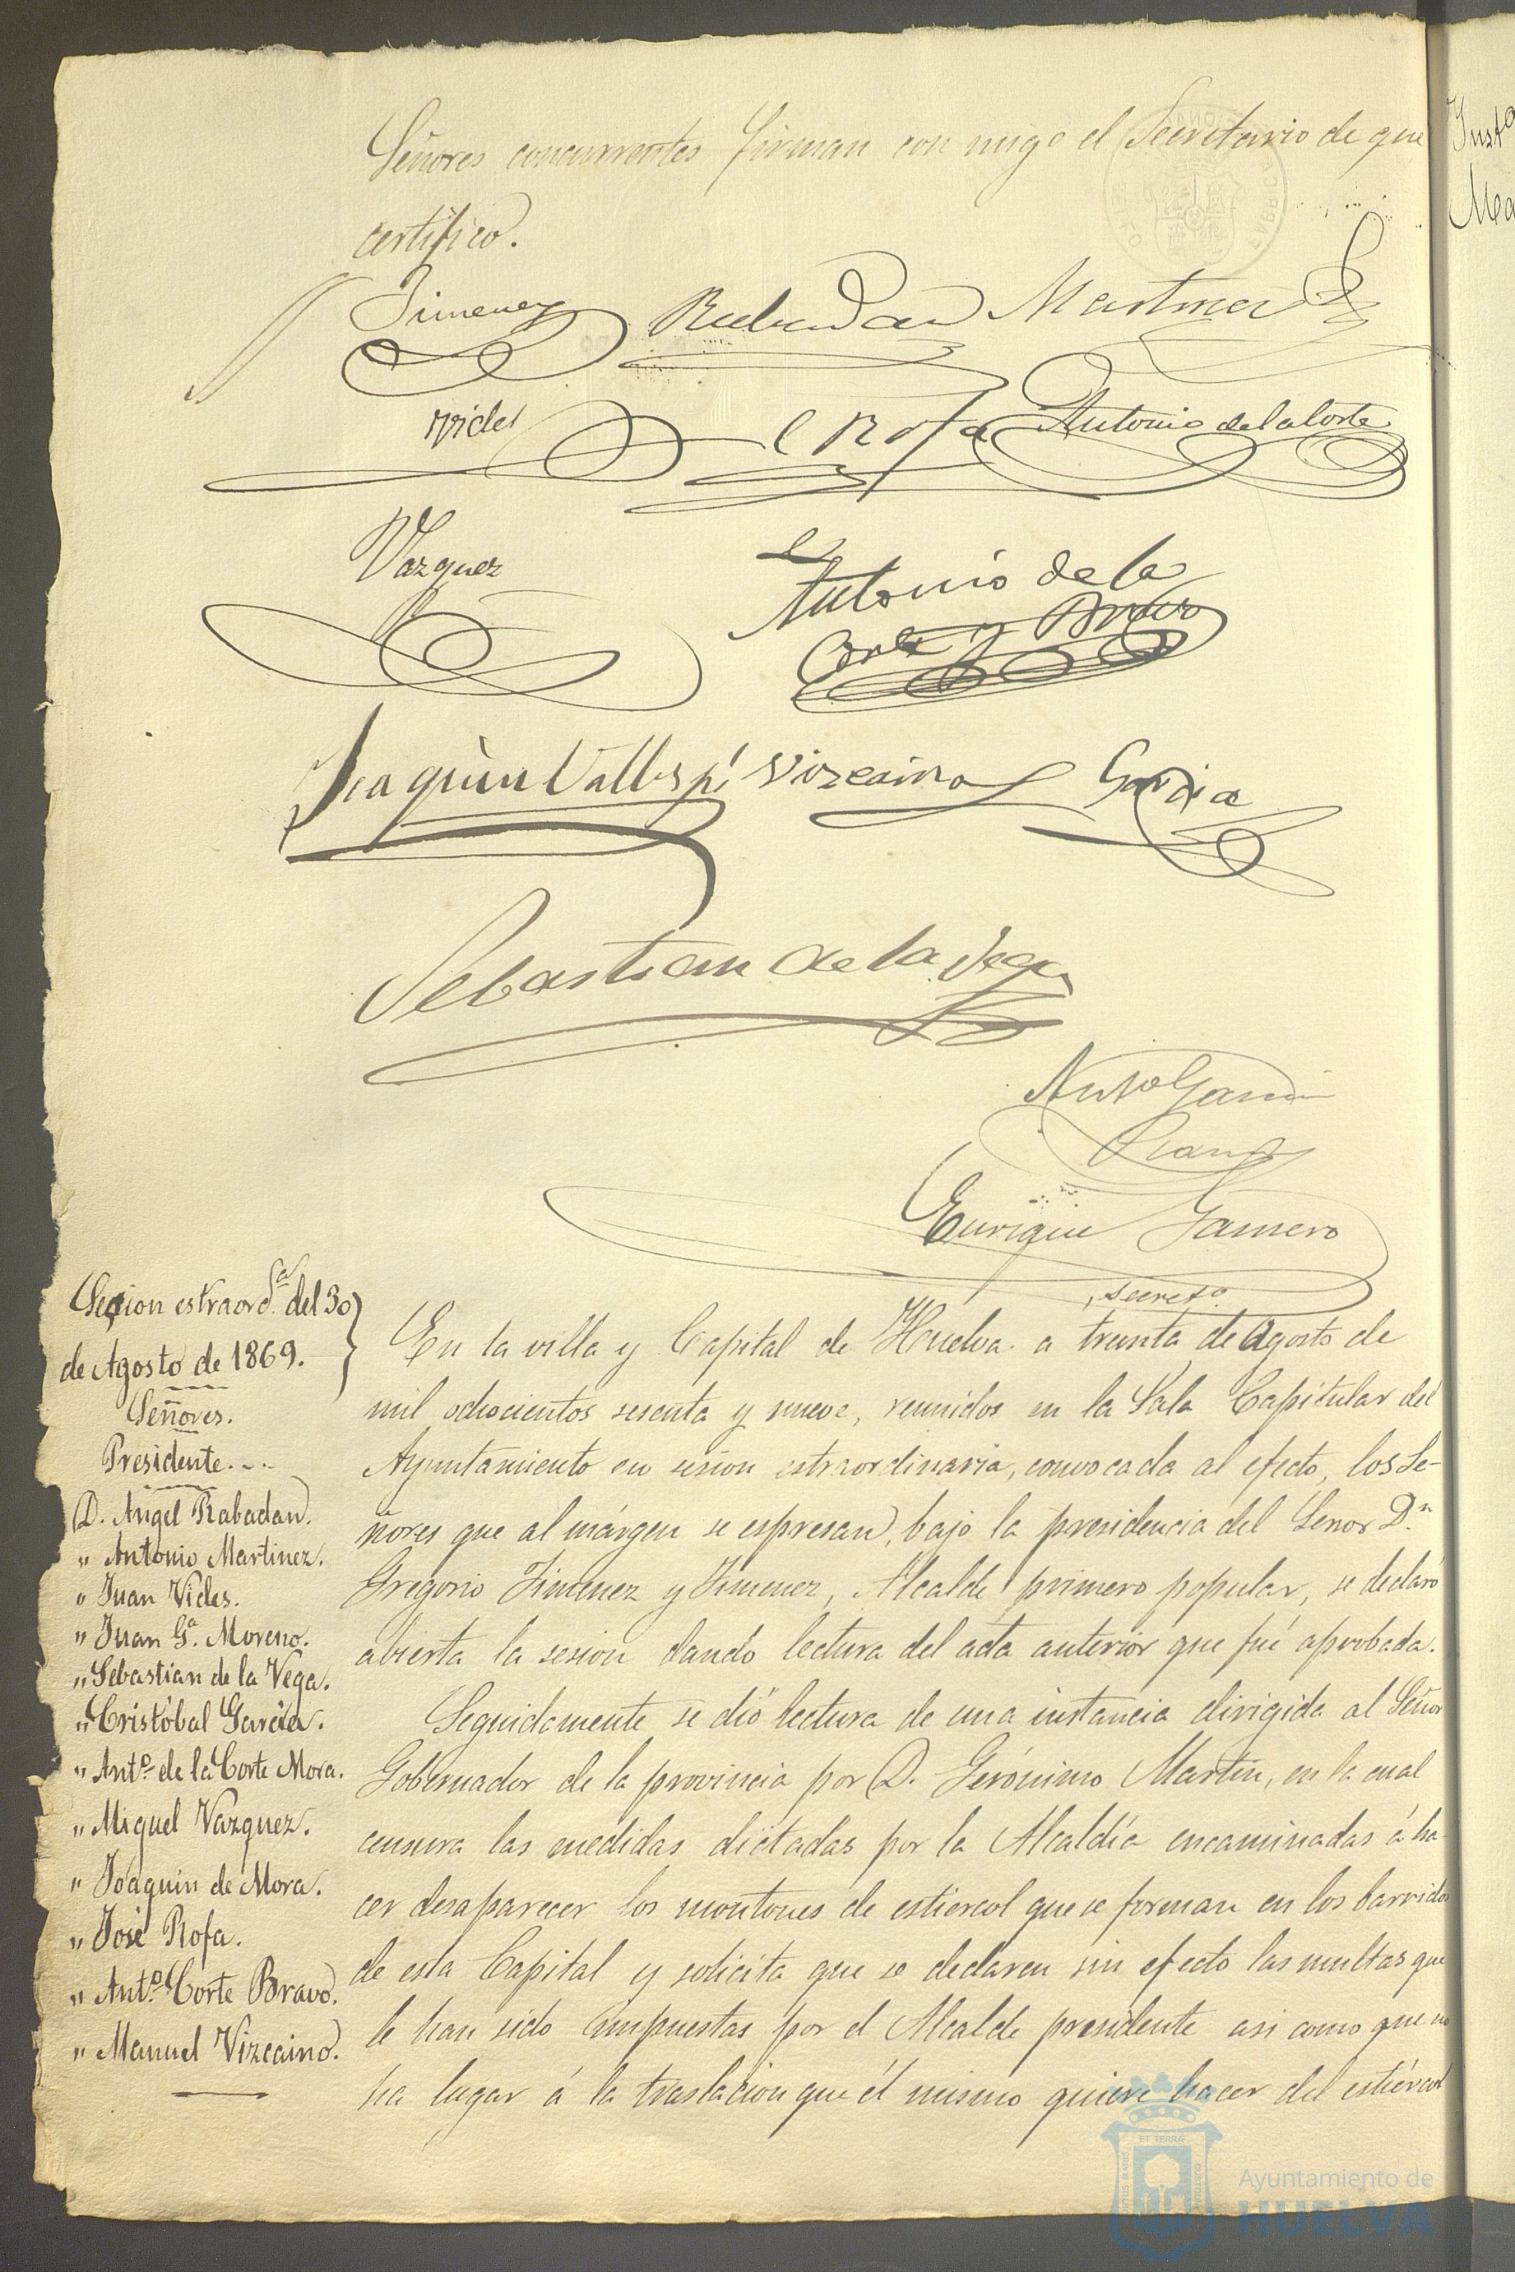 Señores concurrentes firman con migo el Secretario de que
certifico.
Jimenez Rabadan Martinez
Vides C Rofa Antonio de la Corte
Vazquez
Antonio de la
Corte y Bravo
Joaquin Vallespi Vizcaino Garcia
Sebastian de la Vega
Antº Garcia
Ramos
Enrique Gamero
Secretº
Sesion estraordª del 30
de Agosto de 1869.
Señores.
Presidente...
D. Angel Rabadan.
" Antonio Martinez.
" Juan Vides.
" Juan Gª. Moreno.
" Sebastian de la Vega.
" Cristóbal Garcia.
" Antº. de la Corte Mora.
" Miguel Vazquez.
" Joaquin de Mora.
" José Rofa.
" Antº. Corte Bravo.
" Manuel Vizcaino.
En la villa y Capital de Huelva a treinta de Agosto de
mil ochocientos sesenta y nueve, reunidos en la Sala Capitular del
Ayuntamiento en sesion estraordinaria, convocada al efecto, los Se-
ñores que al márgen se espresan, bajo la presidencia del Señor Dn
Gregorio Jimenez y Jimenez, Alcalde primero popular, se declaró
abierta la sesion dando lectura del acta anterior que fué aprobada.
Seguidamente se dió lectura de una instancia dirigida al Señor
Gobernador de la provincia por D. Gerónimo Martin, en la cual
censura las medidas dictadas por la Alcaldía encaminadas á ha-
cer desaparecer los montones de estiercol que se forman en los barridos
de esta Capital y solicita que se declaren sin efecto las multas que
le han sido impuestas por el Alcalde presidente asi como que no
ha lugar á la traslacion que él mismo quiere hacer del estiércol
Ayuntamiento de
HUELVA